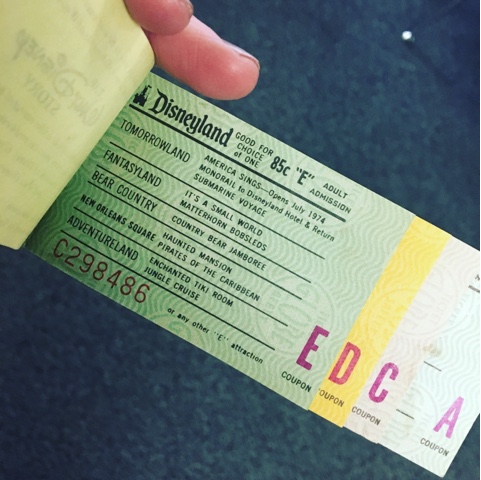 Disneyland
GOOD FOR
CHOICE
of ONE
85c "E"
ADULT
ADMISSION
TOMORROWLAND
AMERICA SINGS—Opens July 1974
MONORAIL to Disneyland Hotel & Return
SUBMARINE VOYAGE
FANTASYLAND
IT'S A SMALL WORLD
MATTERHORN BOBSLEDS
BEAR COUNTRY
COUNTRY BEAR JAMBOREE
NEW ORLEANS SQUARE
HAUNTED MANSION
PIRATES OF THE CARIBBEAN
ADVENTURELAND
ENCHANTED TIKI ROOM
JUNGLE CRUISE
C298486
or any other "E" attraction
E
COUPON
D
COUPON
C
COUPON
A
COUPON